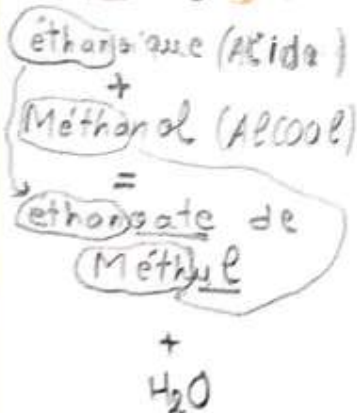 éthanoique (Acide)
+
Méthanol (Alcool)
=
ethanoate de
Méthyl
+
H₂O